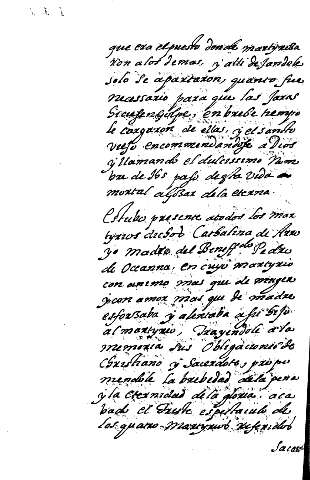 que era el puesto donde martyriza
ron a los demas, y alli dejandole
solo se apartaron, quanto fue
necessario para que las Jaras
hiziessen golpe, en brebe tiempo
le cargaron de ellas, y el santo
viejo encommendandose a Dios
y llamando el dulcissimo nom
bre de Jhs paso de esta vida
mortal a gozar de la eterna.
Estubo presente a todos los mar
tyrios dichos Cathalina de Arro
yo Madre del Beneffdo Pedro
de Ocanna, en cuyo martyrio
con animo mas que de muger
y con amor mas que de madre
esforsaba y alentaba a su hijo
al martyrio, Trayendole a la
memoria sus obligaciones de
Christiano y Sacerdote, propo
niendole la brebedad de la pena
y la eternidad de la gloria. aca
bado el triste espectaculo de
los quatro Martyrios referidos